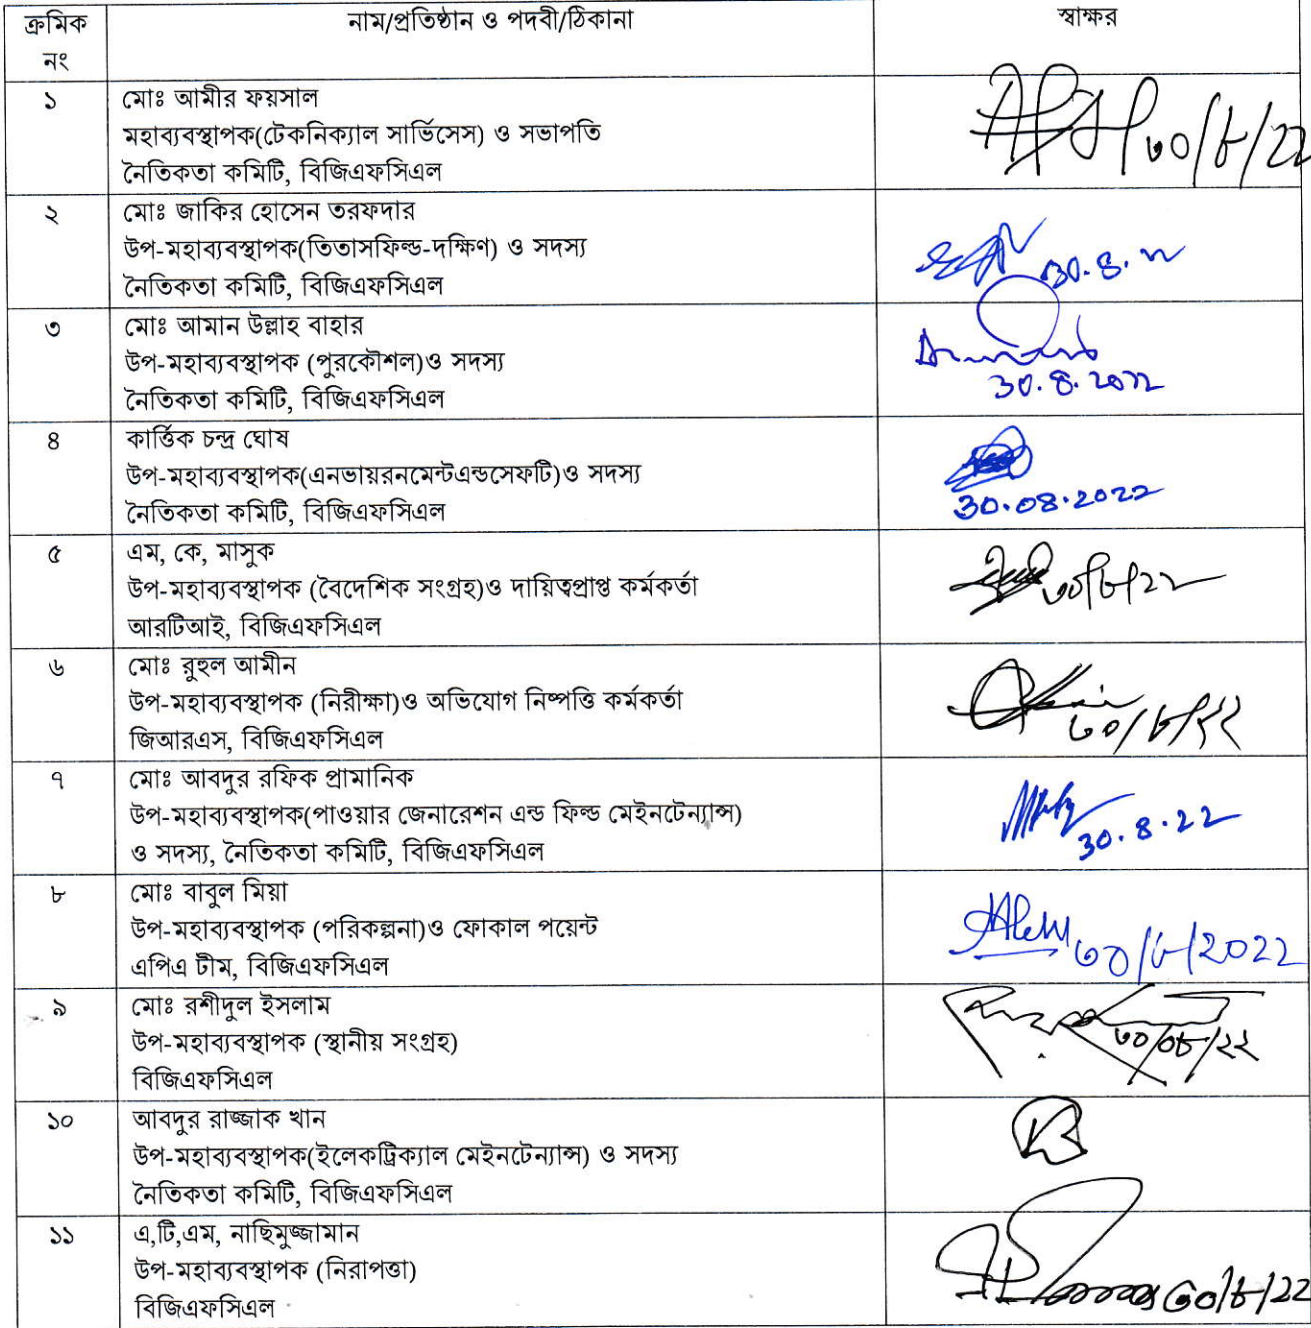 ক্রমিক নং নাম/প্রতিষ্ঠান ও পদবী/ঠিকানা স্বাক্ষর
১ মোঃ আমীর ফয়সাল
মহাব্যবস্থাপক(টেকনিক্যাল সার্ভিসেস) ও সভাপতি
নৈতিকতা কমিটি, বিজিএফসিএল
৩০/৮/22
২ মোঃ জাকির হোসেন তরফদার
উপ-মহাব্যবস্থাপক(তিতাসফিল্ড-দক্ষিণ) ও সদস্য
নৈতিকতা কমিটি, বিজিএফসিএল
30.8.22
৩ মোঃ আমান উল্লাহ বাহার
উপ-মহাব্যবস্থাপক (পুরকৌশল)ও সদস্য
নৈতিকতা কমিটি, বিজিএফসিএল
30.8.2022
৪ কার্ত্তিক চন্দ্র ঘোষ
উপ-মহাব্যবস্থাপক(এনভায়রনমেন্টএন্ডসেফটি)ও সদস্য
নৈতিকতা কমিটি, বিজিএফসিএল
30.08.2022
৫ এম, কে, মাসুক
উপ-মহাব্যবস্থাপক (বৈদেশিক সংগ্রহ)ও দায়িত্বপ্রাপ্ত কর্মকর্তা
আরটিআই, বিজিএফসিএল
৩০/৮/22
৬ মোঃ রুহুল আমীন
উপ-মহাব্যবস্থাপক (নিরীক্ষা)ও অভিযোগ নিষ্পত্তি কর্মকর্তা
জিআরএস, বিজিএফসিএল
৩০/৮/২২
৭ মোঃ আবদুর রফিক প্রামানিক
উপ-মহাব্যবস্থাপক(পাওয়ার জেনারেশন এন্ড ফিল্ড মেইনটেন্যান্স)
ও সদস্য, নৈতিকতা কমিটি, বিজিএফসিএল
30.8.22
৮ মোঃ বাবুল মিয়া
উপ-মহাব্যবস্থাপক (পরিকল্পনা)ও ফোকাল পয়েন্ট
এপিএ টীম, বিজিএফসিএল
৩০/৮/2022
৯ মোঃ রশীদুল ইসলাম
উপ-মহাব্যবস্থাপক (স্থানীয় সংগ্রহ)
বিজিএফসিএল
৩০/০৮/২২
১০ আবদুর রাজ্জাক খান
উপ-মহাব্যবস্থাপক(ইলেকট্রিক্যাল মেইনটেন্যান্স) ও সদস্য
নৈতিকতা কমিটি, বিজিএফসিএল
১১ এ,টি,এম, নাছিমুজ্জামান
উপ-মহাব্যবস্থাপক (নিরাপত্তা)
বিজিএফসিএল
৩০/৮/22